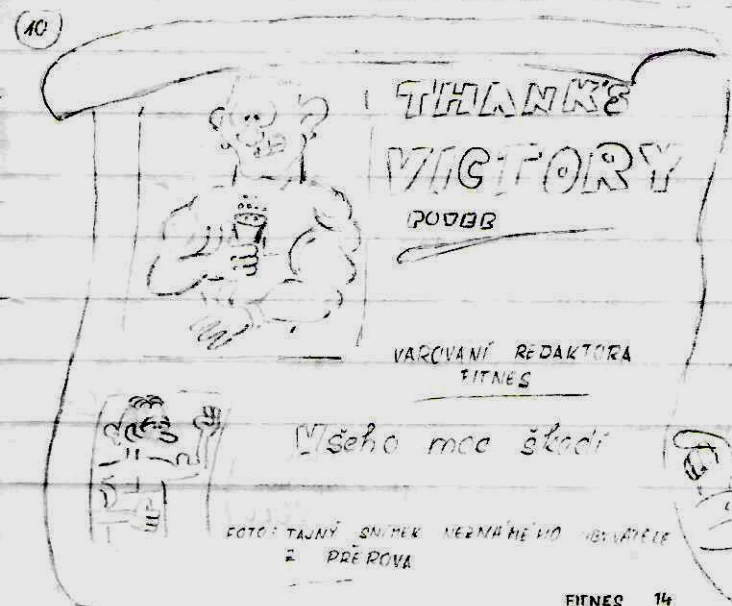 10
THANK'S
VICTORY
POWER
VAROVANÍ REDAKTORA
FITNES
Všeho moc škodí
FOTO: TAJNÝ SNÍMEK NEZNÁMÉHO OBYVATELE
Z PŘEROVA
FITNES 14